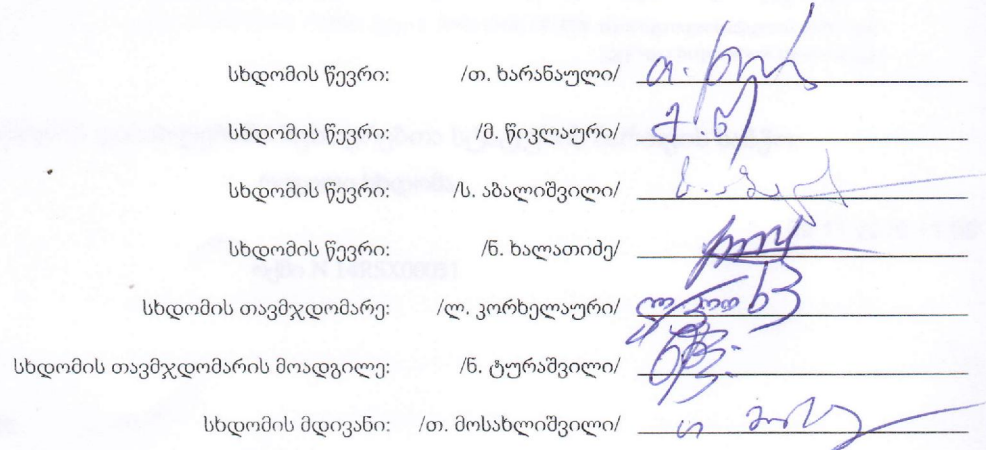 სხდომის წევრი: /თ. ხარანაული/
სხდომის წევრი: /მ. წიკლაური/
სხდომის წევრი: /ს. აბალიშვილი/
სხდომის წევრი: /ნ. ხალათიძე/
სხდომის თავმჯდომარე: /ლ. კორხელაური/
სხდომის თავმჯდომარის მოადგილე: /ნ. ტურაშვილი/
სხდომის მდივანი: /თ. მოსახლიშვილი/